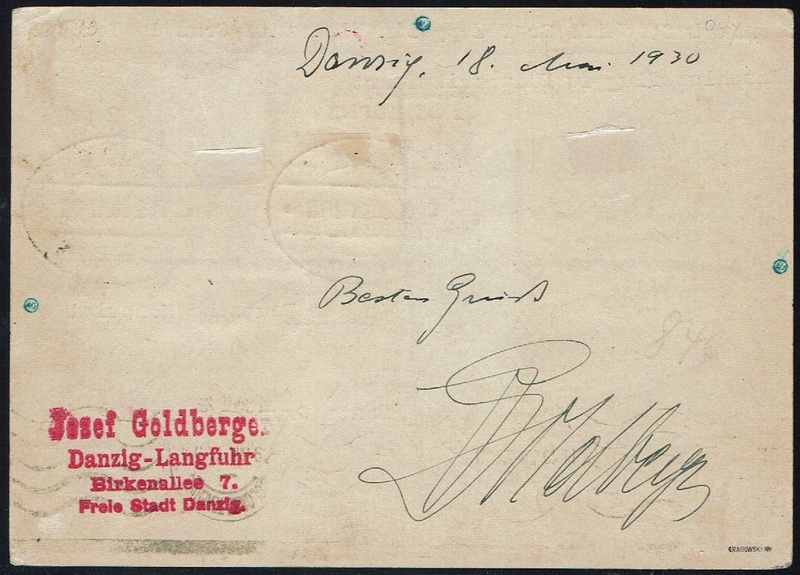 Danzig, 18. Mai 1930
Besten Gruß
Josef Goldberger
Danzig-Langfuhr
Birkenallee 7.
Freie Stadt Danzig.
GRABOWSKI